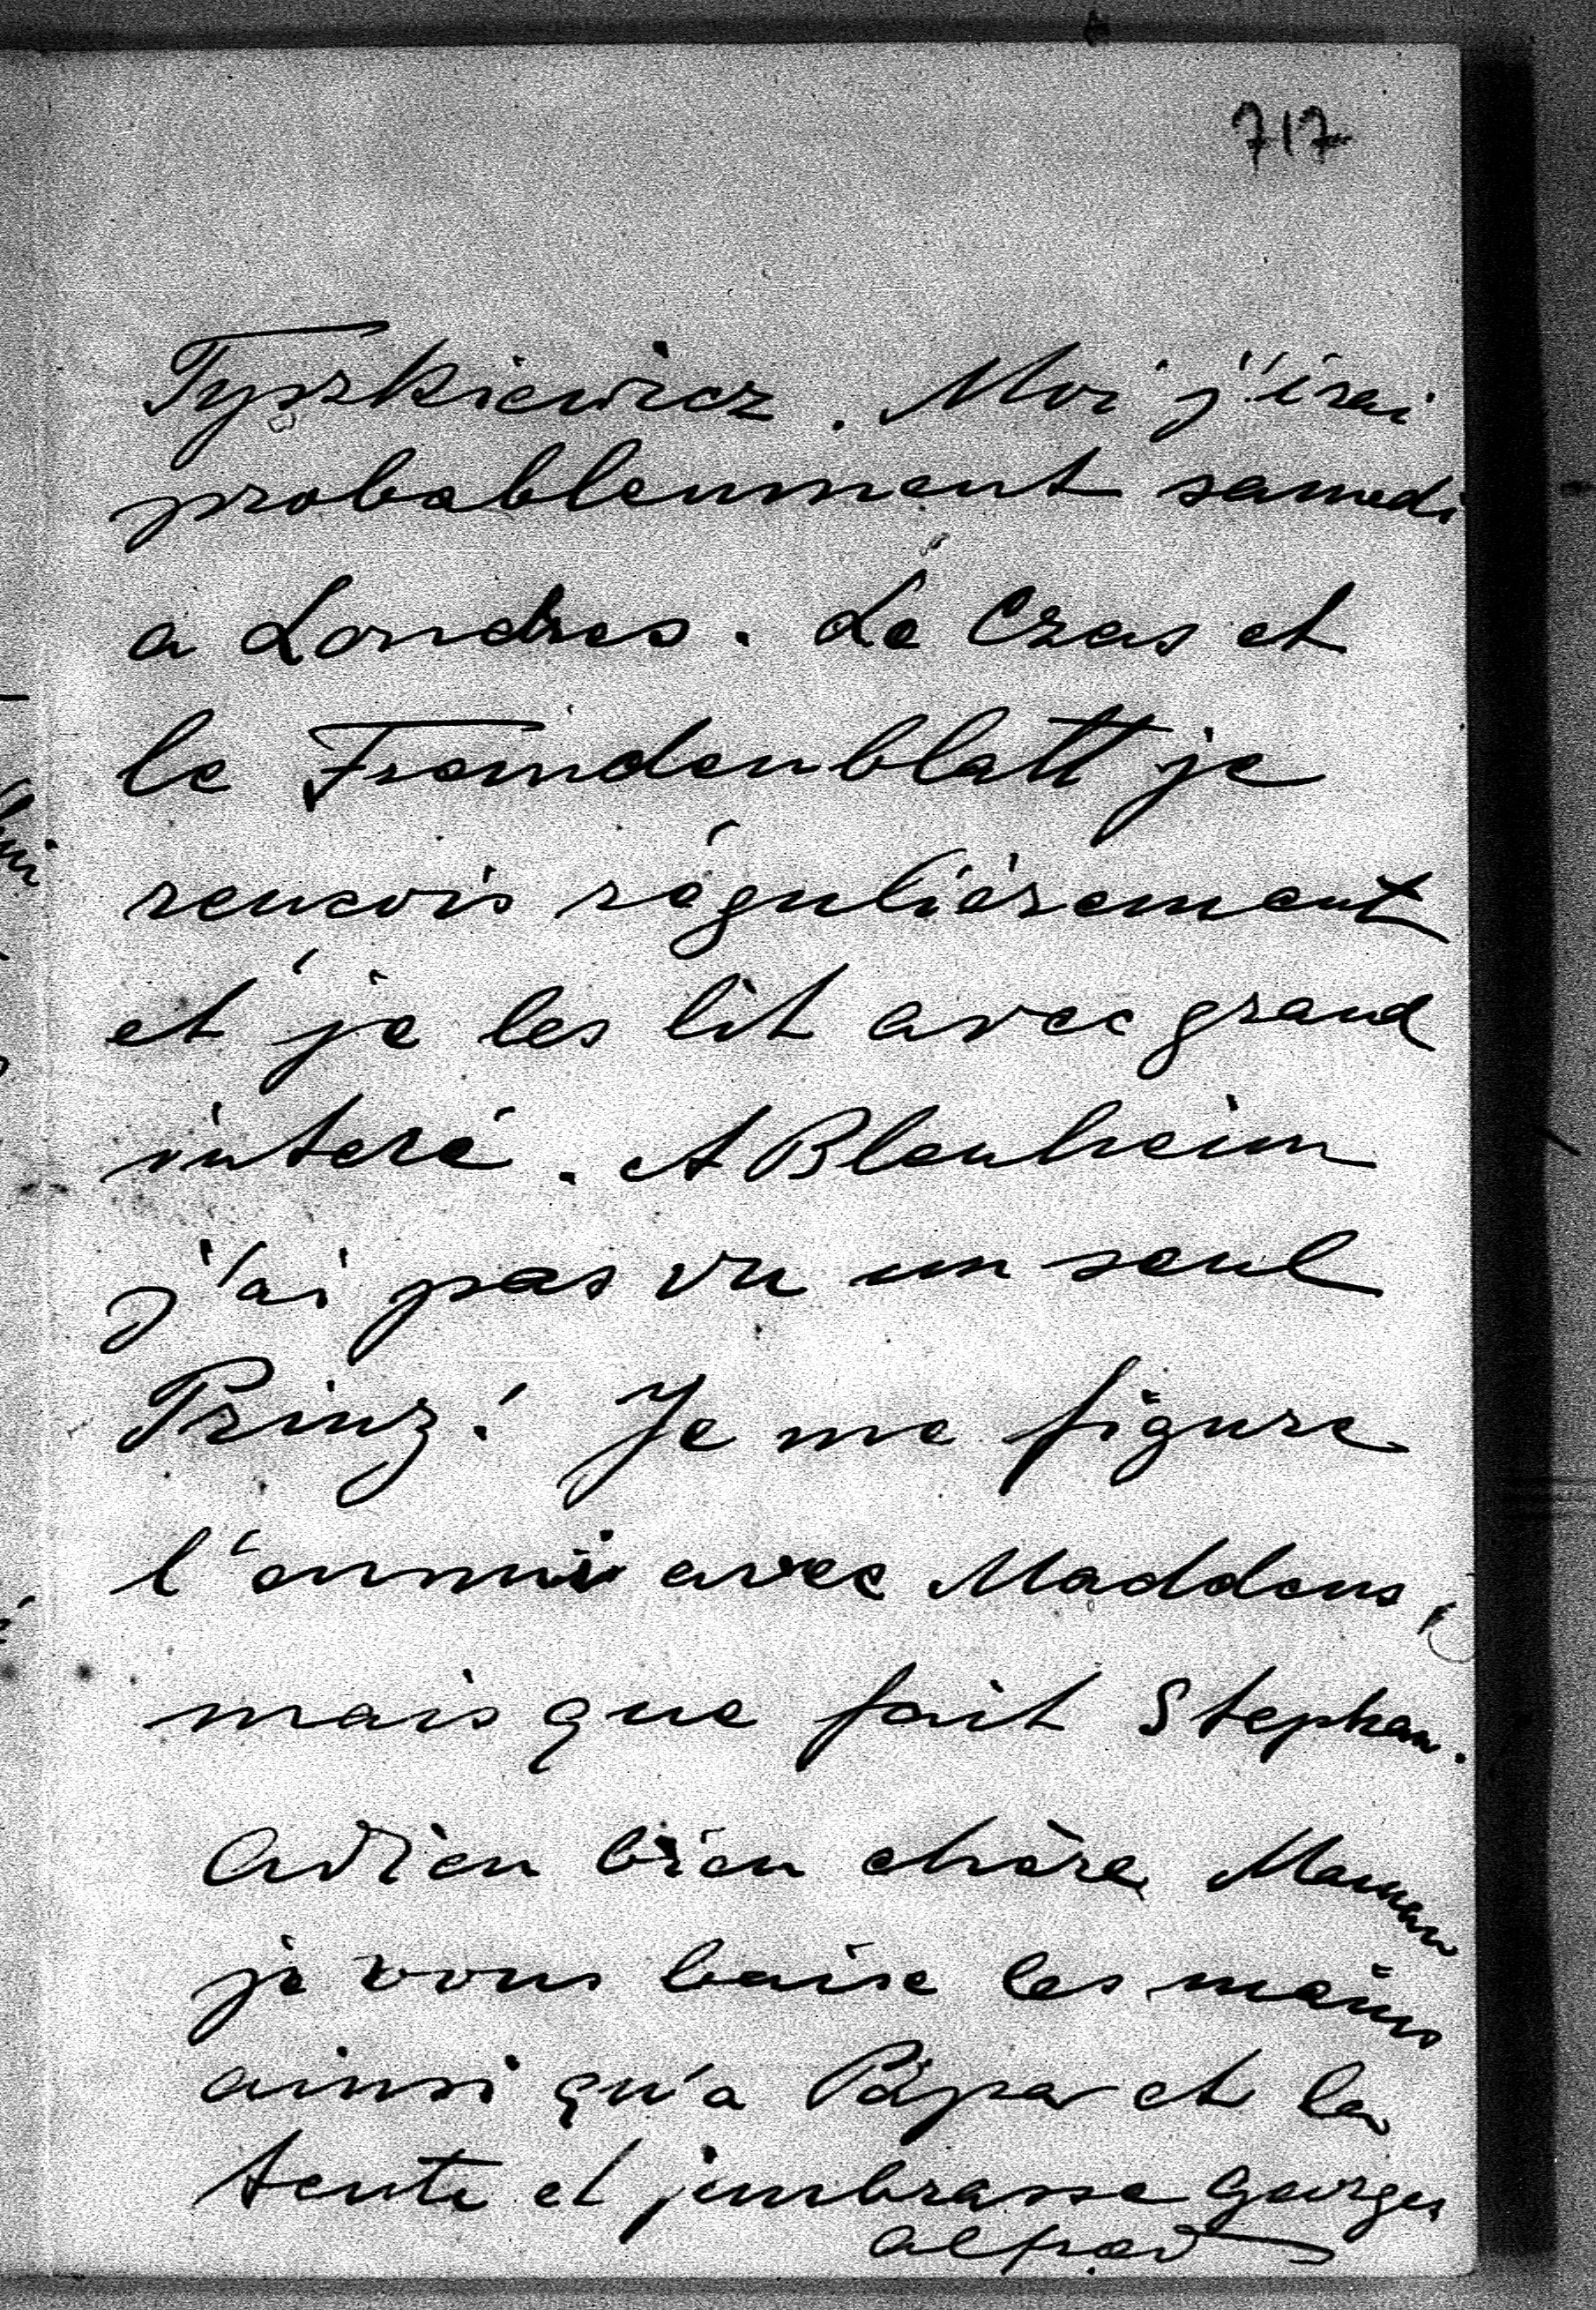 717
Tyszkiewicz. Moi j'irai
probablenment samedi
a Londres. Le Czas et
le Fremdenblatt je
rencois régulièrement
et je les lit avec grand
interé. A Blenheim
j'ai pas vu un seul
Prinz! Je me figure
l'ennui avec Maddens,
mais que fait Stephan.
Adieu bien chère Maman
je vous baise les mains
ainsi qu'a Papa et la
tente et j'embrasse Georges
Alfred